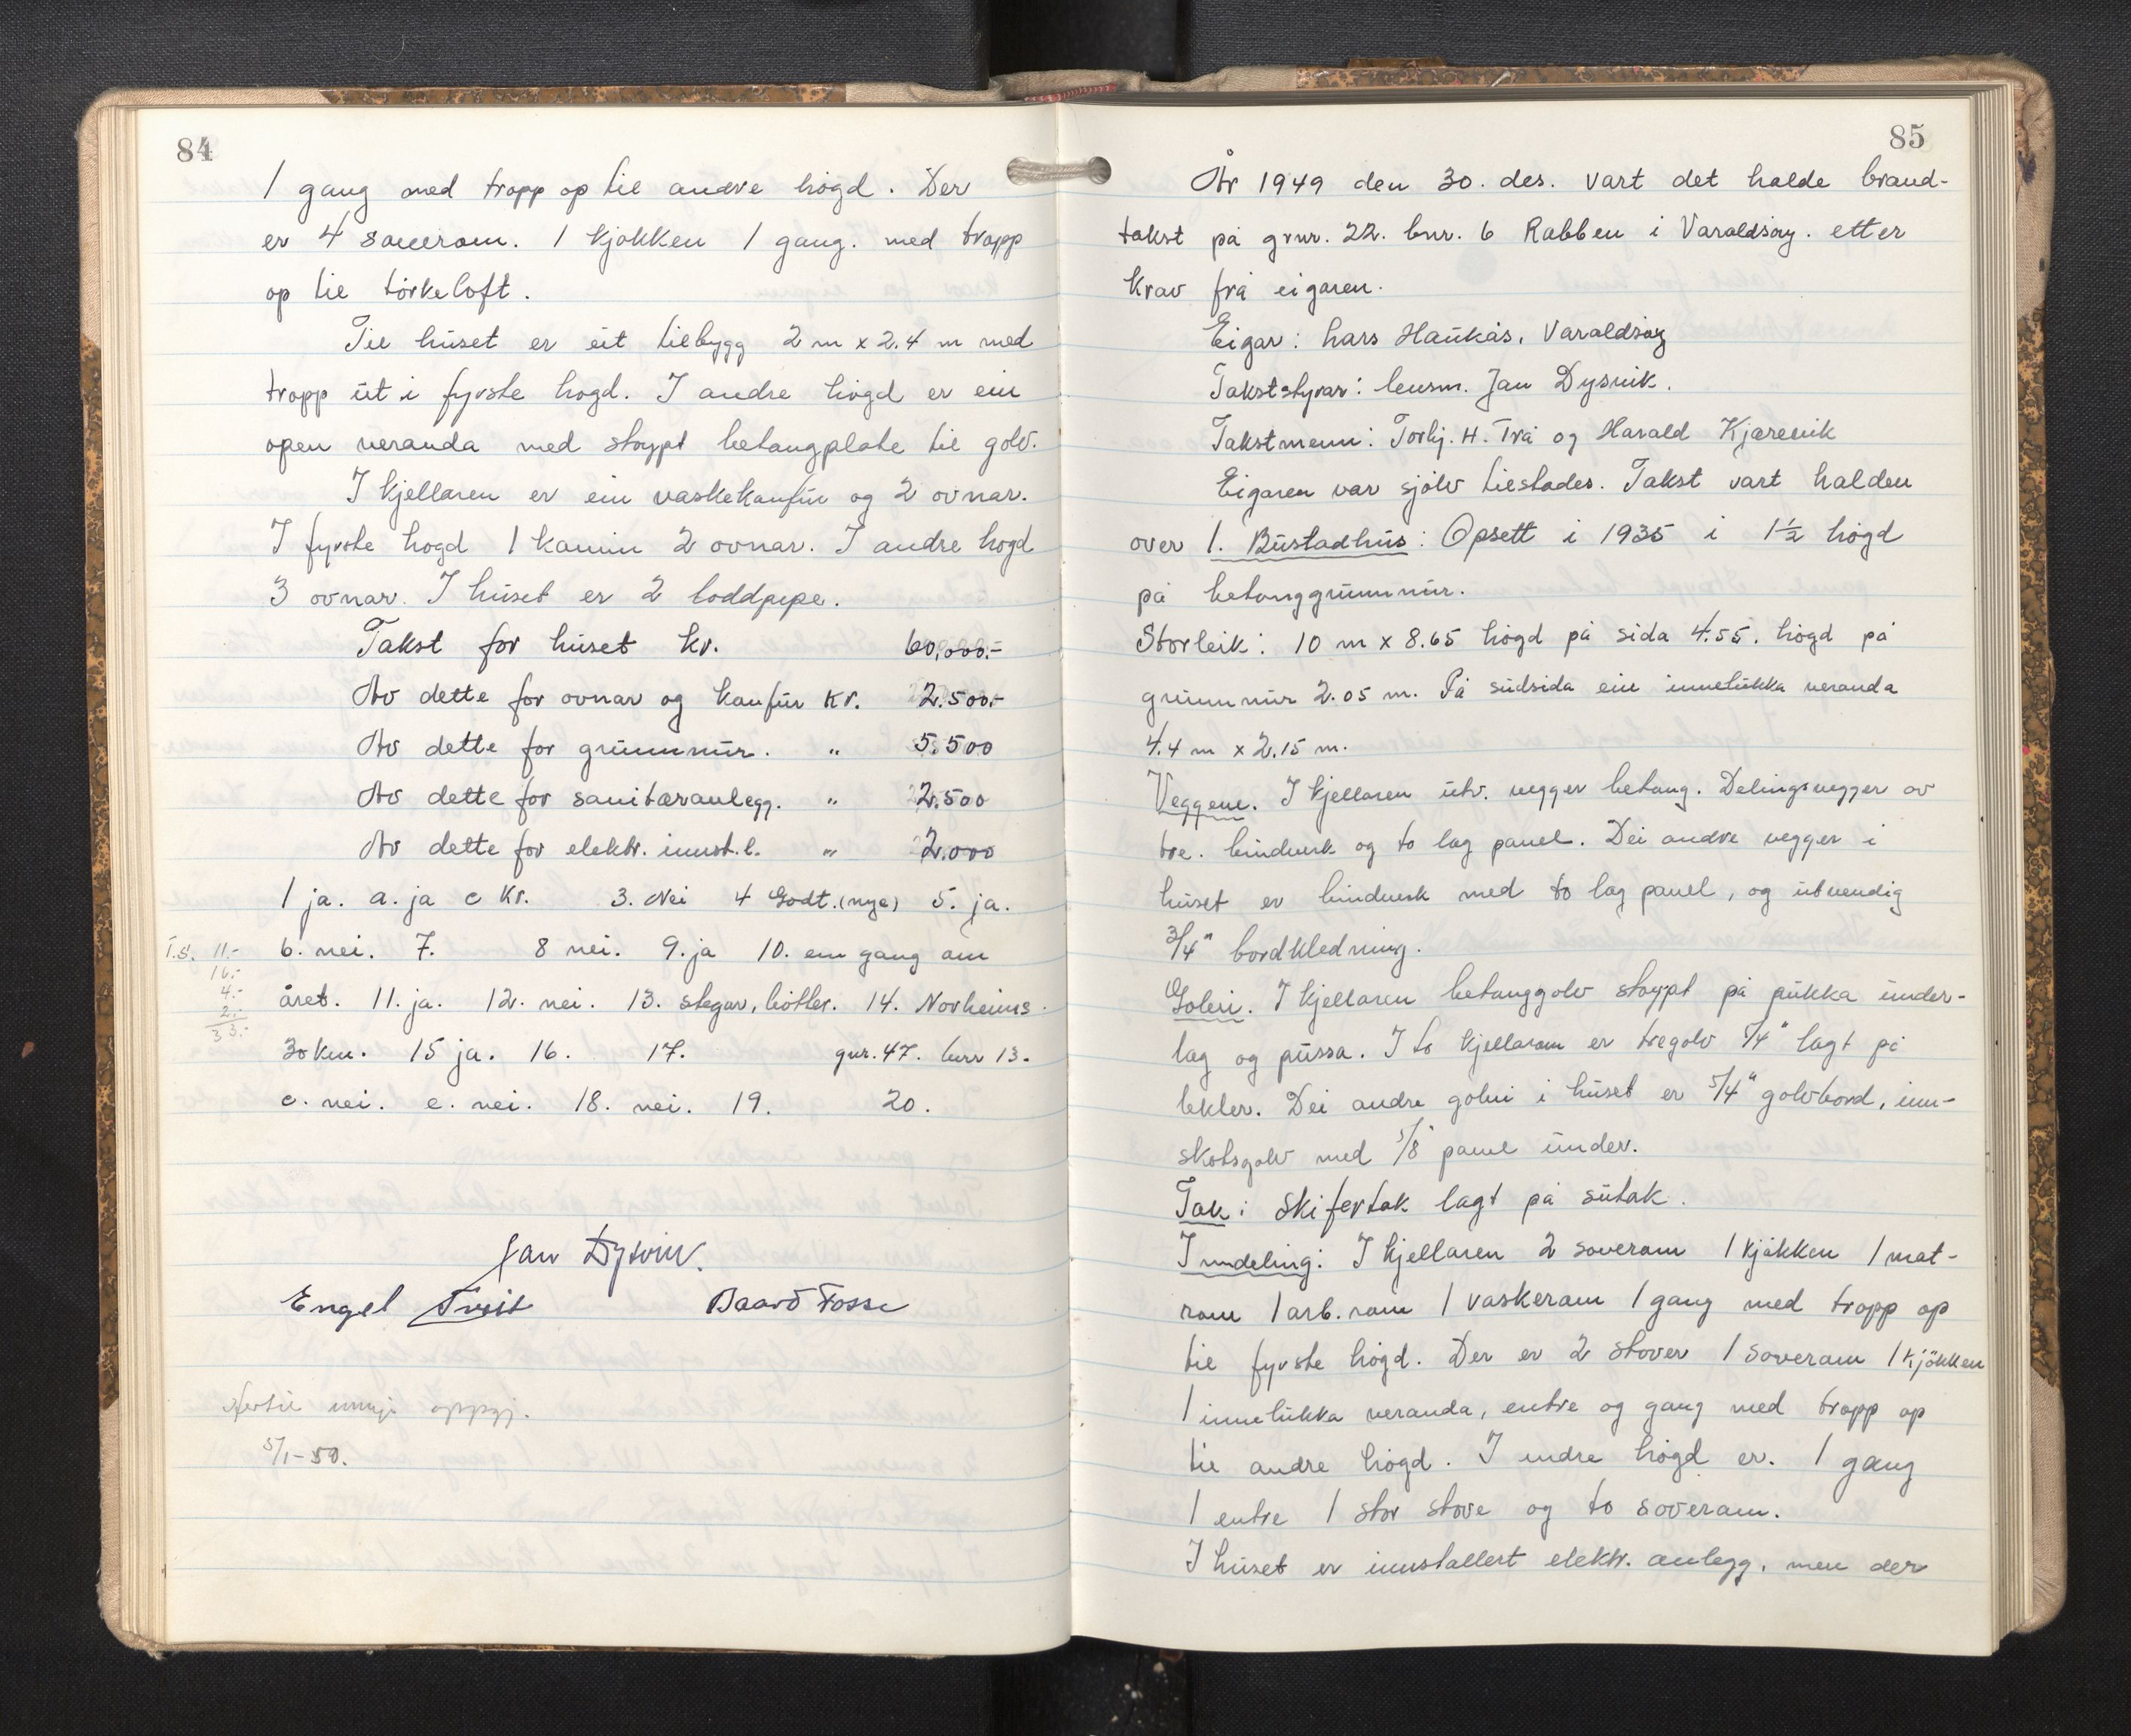 84
1 gang med tropp op til andre högd. Der
er 4 soverom. 1 kjøkken 1 gang. med tropp
op til törkeloft.
Til huset er eit tilbygg 2 m x 2.4 m med
tropp ut i fyrste hogd. I andre högd er ein
open veranda med stoypt betongplate til golv.
I kjellaren er ein vaskekomfur og 2 ovnar.
I fyrste hogd 1 kamin 2 ovnar. I andre hogd
3 ovnar. I huset er 2 loddpipe.
Takst for huset kr. 60,000.-
Av dette for ovnar og komfur kr. 2.500.-
Av dette for grunnmur. " 5.500
Av dette for sanitæranlegg. " 2.500
Av dette for elektr. innst.l. " 2.000
1 ja. a. ja c kr. 3. Nei 4 Godt. (nye) 5. ja.
I.S. 11.- 6. nei. 7. 8 nei. 9. ja 10. em gang om
16.-
4.- året. 11. ja. 12. nei. 13. stegar, bötter. 14. Norheims
2.-
33.-
30 km. 15 ja. 16. 17. gnr. 47. bnr 13.
c. nei. e. nei. 18. nei. 19. 20.
Jan Dysvik.
Engel Tveit Baard Fosse
5/1-50.
85
År 1949 den 30. des. vart det halde brand-
takst på grnr. 22. bnr. 6 Rabben i Varaldsöy. etter
krav frå eigaren.
Eigar: Lars Haukås, Varaldsöy
Takststyrar: lensm. Jan Dysvik.
Takstmenn: Torbj. H. Trå og Harald Kjærevik
Eigaren var sjölv tilstades. Takst vart halden
over 1. Bustadhus: Opsett i 1935 i 1½ högd
på betonggrunnmur.
Storleik: 10 m x 8.65 högd på sida 4.55. högd på
grunnmur 2.05 m. På sudsida ein innelukka veranda
4.4 m x 2.15 m.
Veggene. I kjellaren utv. vegger betong. Delingsvegger av
tre. bindverk og to lag panel. Dei andre vegger i
huset er bindverk med to lag panel, og utvendig
3/4" bordkledning.
Golvi. I kjellaren betonggolv stoypt på pukka under-
lag og pussa. I to kjellarom er tregolv 5/4" lagt på
lekter. Dei andre golvi i huset er 5/4" golvbord, inn-
skotsgolv med 5/8" panel under.
Tak: Skifertak lagt på sutak.
Inndeling: I kjellaren 2 soverom 1 kjökken 1 mat-
rom 1 arb. rom 1 vaskerom 1 gang med tropp op
til fyrste högd. Der er 2 stover 1 soverom 1 kjökken
1 innelukka veranda, entre og gang med tropp op
til andre högd. I andre högd er. 1 gang
1 entre 1 stor stove og to soverom.
I huset er innstallert elektr. anlegg, men der